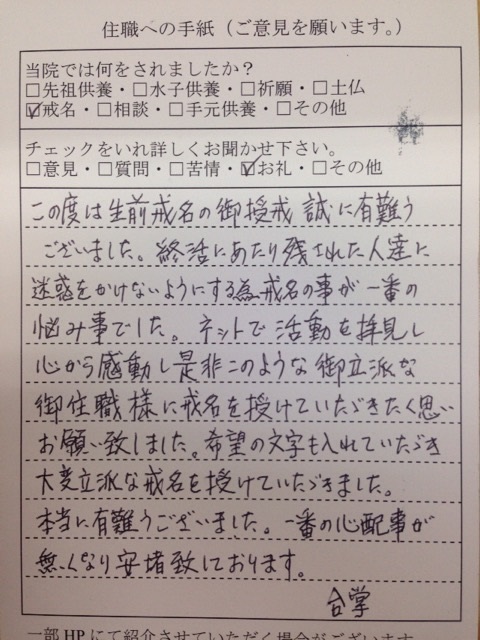 住職への手紙（ご意見を願います。）
当院では何をされましたか？
□先祖供養・□水子供養・□祈願・□土仏
☑戒名・□相談・□手元供養・□その他
チェックをいれ詳しくお聞かせ下さい。
□意見・□質問・□苦情・☑お礼・□その他
この度は生前戒名の御授戒 誠に有難う
ございました。終活にあたり残された人達に
迷惑をかけないようにする為戒名の事が一番の
悩み事でした。ネットで活動を拝見し
心から感動し是非このような御立派な
御住職様に戒名を授けていただきたく思い
お願い致しました。希望の文字も入れていただき
大変立派な戒名を授けていただきました。
本当に有難うございました。一番の心配事が
無くなり安堵致しております。
合掌
一部HPにて紹介させていただく場合がございます